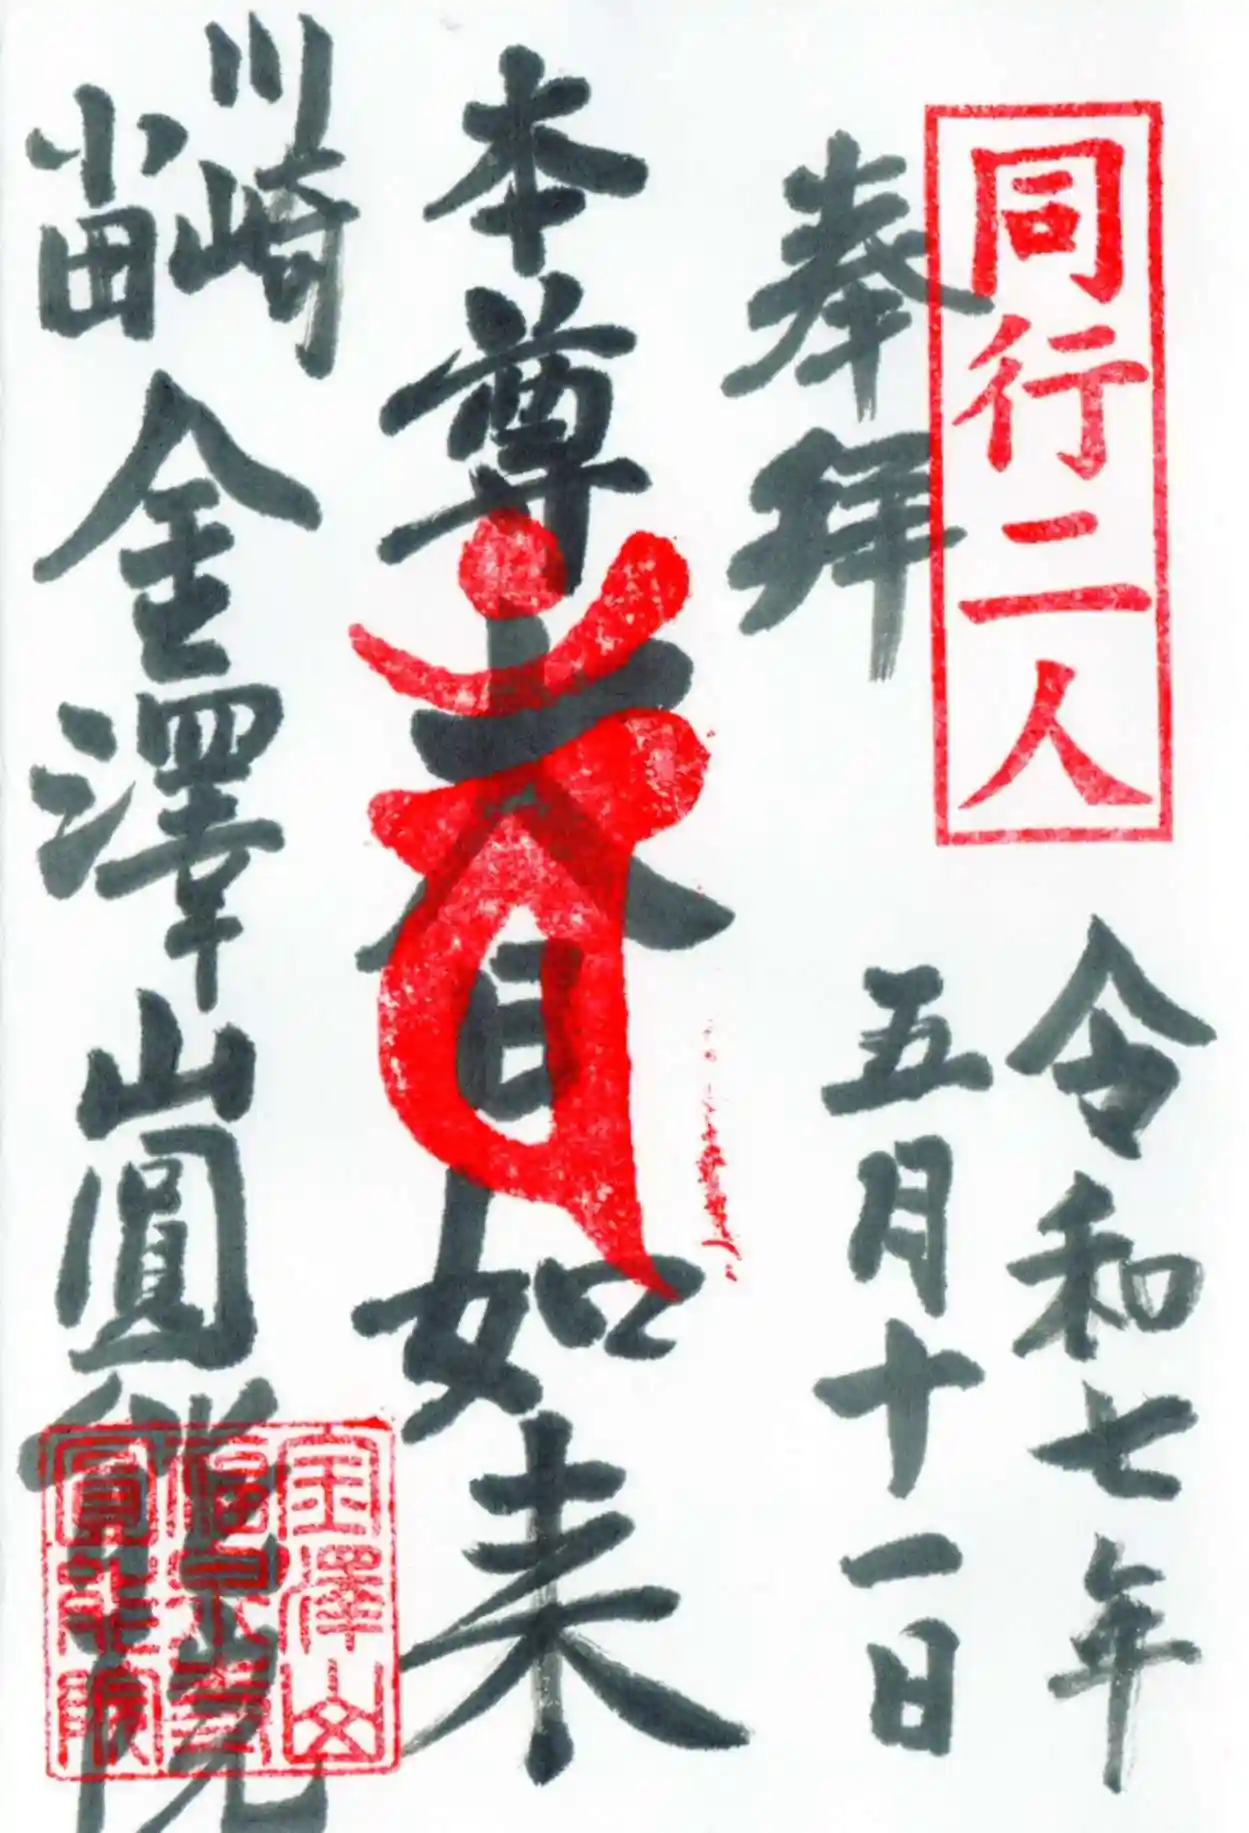 同行二人
奉拝
令和七年
五月十一日
本尊大日如来
川崎
小田
金澤山圓能院
金澤山